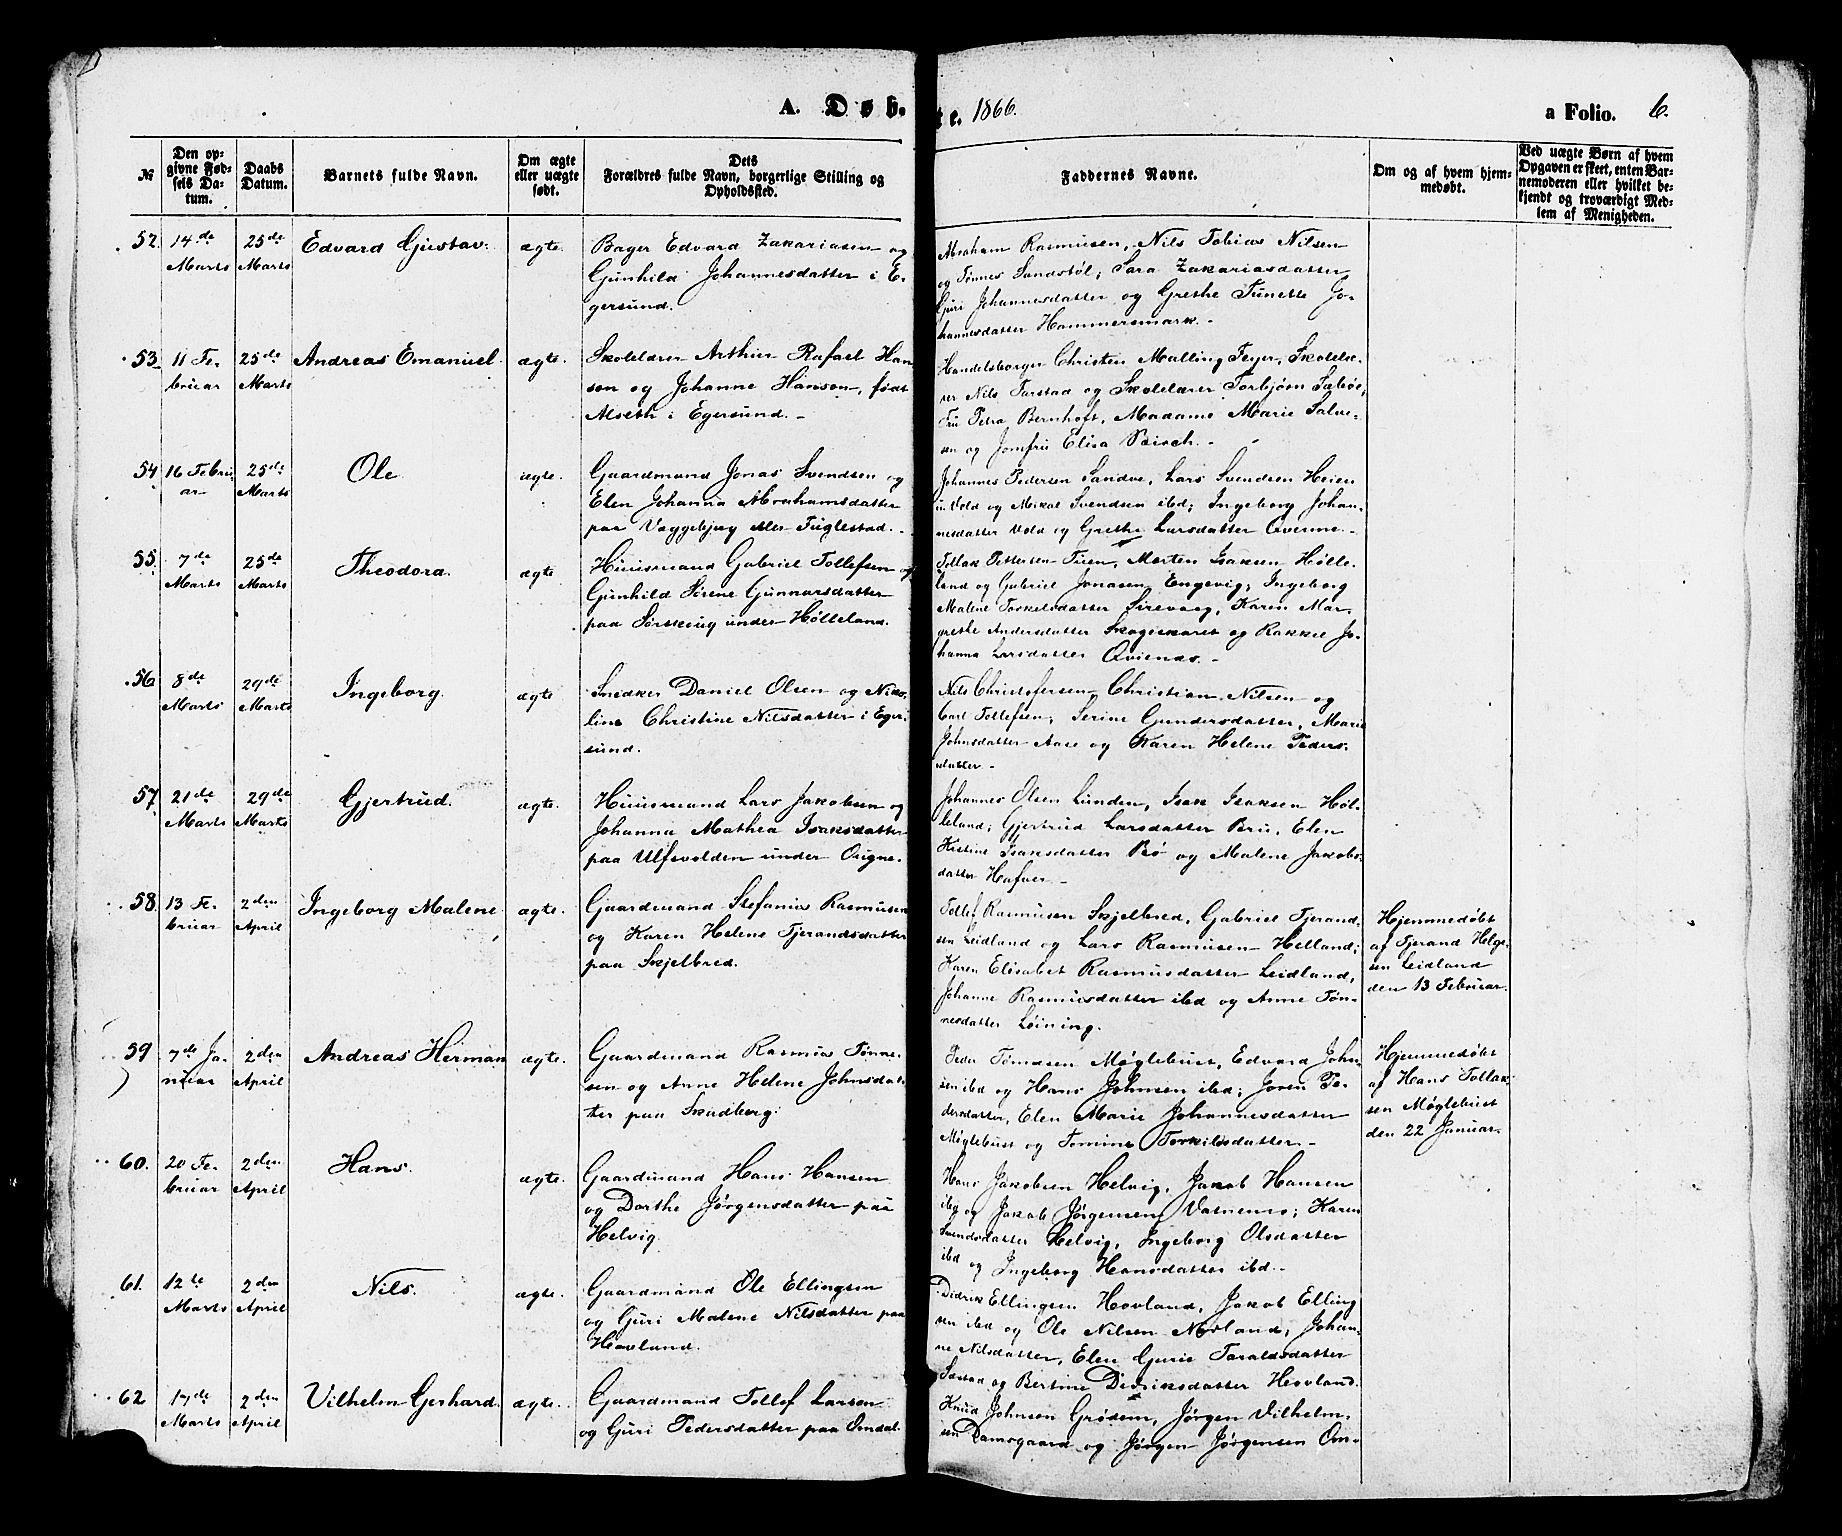 A. Døb- te. 1866. a Folio. 6.
№
Den op-
givne Fød-
sels Da-
tum.
Daabs
Datum.
Barnets fulde Navn.
Om ægte
eller uægte
født.
Dets
Forældres fulde Navn, borgerlige Stilling og
Opholdssted.
Faddernes Navne.
Om og af hvem hjem-
medøbt.
Ved uægte Børn af hvem
Opgaven er skeet, enten Bar-
nemoderen eller hvilket be-
kjendt og troværdigt Med-
lem af Menigheden.
52. 14de
Marts
25de
Marts
Edvard Gustav.
ægte.
Bager Edvard Zakariasen og
Gunhild Johannesdatter i E-
gersund.
Abraham Rasmusen, Nils Tobias Nilsen
og Tønnes Sandstøl; Sara Zakariasdatter
Guri Johannesdatter og Grethe Tunette Jo-
hannesdatter Hammersmark.
53. 11 Fe-
bruar
25de
Marts
Andreas Emanuel.
ægte.
Skolelærer Arthur Rafael Han
sen og Johanne Hanson, født
Alseth i Egersund.
Handelsborger Christen Malling Feyer, Skolelæ-
rer Nils Tarstad og Skolelærer Torbjørn Sæbøe,
Fru Petra Bernhoft, Madame Marie Salve-
sen og Jomfru Elisa
54 16 Febru-
ar
25de
Marts
Ole
ægte.
Gaardmand Jonas Svendsen og
Elen Johanna Abrahamsdatter
paa Væggebjerg eller Fuglestad.
Johannes Pedersen Sandve, Lars Svendsen Heien
Vold og Mikal Svendsen ibd; Ingeborg Johan-
nesdatter Vold og Grethe Larsdatter
55. 7de
Marts
25de
Marts
Theodora.
ægte
Huusmand Gabriel Tollefsen og
Gunhild Serene Gunnarsdatter
paa Sørskiug under Hølleland.
Tollak Pettersen Tuen, Morten Isaksen Hølle-
land og Gabriel Jonasen Engevig; Ingeborg
Malene Torkelsdatter Sirevaag, Karen Mar-
grethe Andersdatter Skogeskaret og Rakkel Jo-
hanna Larsdatter
56 8de
Marts
29de
Marts
Ingeborg.
ægte.
Snedker Daniel Olsen og Niko-
line Christine Nilsdatter i Eger-
sund.
Nils Christofersen, Christian Nilsen og
Carl Tollefsen; Serine Gundersdatter, Marie
Johnsdatter Aase og Karen Helene Peders-
datter.
57. 21de
Marts
29de
Marts
Gjertrud.
ægte.
Huusmand Lars Jakobsen og
Johanna Mathea Isaksdatter
paa Ulfsvolden under Ougne.
Johannes Olsen Lunden, Isak Isaksen Høl-
leland; Gjertrud Larsdatter Bru, Elen
Kistine Isaksdatter Bø og Malene Jakobs-
datter Hafsøe.
58. 13 Fe-
bruar
2den
April
Ingeborg Malene
ægte.
Gaardmand Stefanias Rasmusen
og Karen Helene Tjerandsdatter
paa Skjelbred.
Tollef Rasmusen Skjelbred, Gabriel Tjerand-
sen Leidland og Lars Rasmusen Helland;
Karen Elisabet Rasmusdatter Leidland,
Johanne Rasmusdatter ibd og Anne Tøn-
nesdatter Løining.
Hjemmedøbt
af Tjerand Helge-
sen Leidland
den 13 Februar.
59 7de Ja-
nuar
2den
April
Andreas Herman
ægte.
Gaardmand Rasmus Tønne-
sen og Anne Helene Johnsdat-
ter paa Skadberg.
Peder Tømasen Møglebust, Edvard John-
sen ibd og Hans Johnsen ibd; Joren Pe-
dersdatter, Elen Marie Johannesdatter
Møglebust og Tomine Torkilsdatter.
Hjemmedøbt
af Hans Tollak-
sen Møglebust
den 22 Januar.
60. 20 Fe-
bruar
2den
April
Hans.
ægte.
Gaardmand Hans Hansen
og Dorthe Jørgensdatter paa
Helvig.
Hans Jakobsen Helvig, Jakob Hansen
ibd og Jakob Jørgensen Vatnemo; Karen
Svendsdatter Helvig, Ingeborg Olsdatter
ibd og Ingeborg Hansdatter ibd.
61. 12te
Marts
2den
April
Nils.
ægte.
Gaardmand Ole Ellingsen
og Guri Malene Nilsdatter paa
Hovland.
Didrik Ellingsen Hovland, Jakob Elling
sen ibd og Ole Nilsen Novland; Johan-
ne Nilsdatter, Elen Gurie Taraldsdatter
og Bertine Didriksdatter Hovland.
62 17de
Marts
2den
April
Vilhelm Gerhard.
ægte.
Gaardmand Tollef Larsen
og Guri Pedersdatter paa Omdal.
Knud Johnsen Grødem, Jørgen Vilhelm-
sen Damsgaard og Jørgen Jørgensen Om-